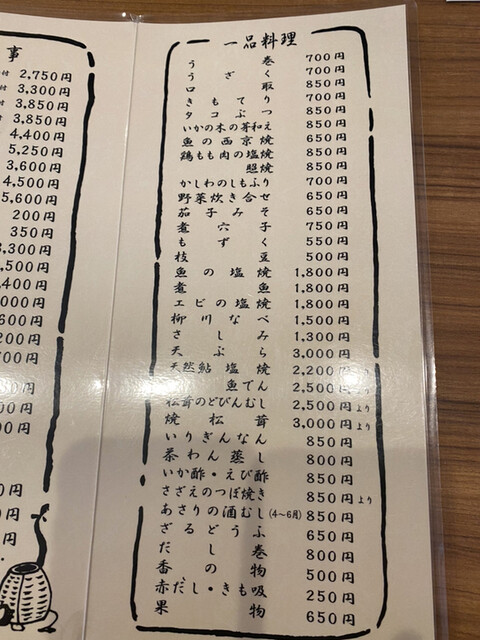 事
付 2,750円
付 3,300円
3,850円
付 3,850円
4,400円
5,250円
3,600円
4,500円
5,600円
200円
350円
3,300円
,500円
,400円
000円
600円
200円
700円
00円
00円
0円
円
円
一品料理
う巻 700円
うざく 700円
口取 850円
きもてり 700円
タコぶつ 850円
いかの木の芽和え 850円
魚の西京焼 650円
鶏もも肉の塩焼 850円
照焼 850円
かしわのしもふり 700円
野菜炊き合せ 650円
茄子みそ 650円
煮穴子 750円
もずく 550円
枝豆 500円
魚の塩焼 1,800円
煮魚 1,800円
エビの塩焼 1,800円
柳川なべ 1,500円
さしみ 1,300円
天ぷら 3,000円
天然鮎塩焼 2,200円より
魚でん 2,500円より
松茸のどびんむし 2,500円より
焼松茸 3,000円より
いりぎんなん 850円
茶わん蒸し 800円
いか酢・えび酢 850円
さざえのつぼ焼き 850円より
あさりの酒むし(4〜6月) 850円
ざるどうふ 650円
だし巻 800円
香の物 500円
赤だし・きも吸 250円
果物 650円